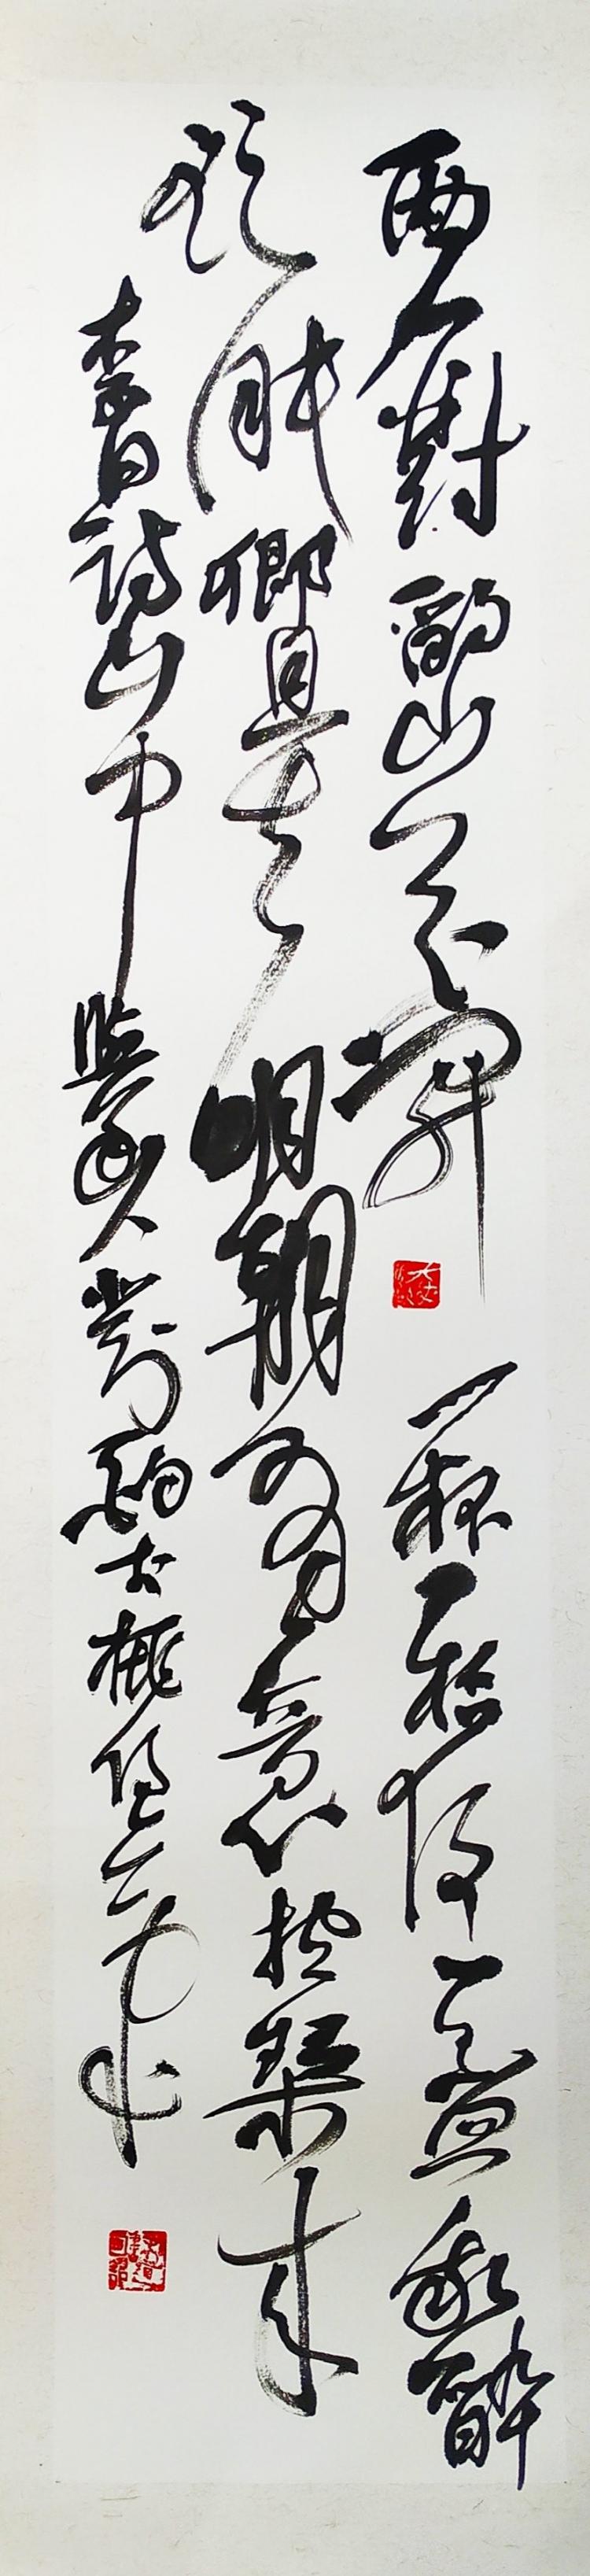 兩人對酌山花開一杯一桮復一盃我醉
欲眠卿且去明朝有意抱琴來
李白詩山中與幽人對酌